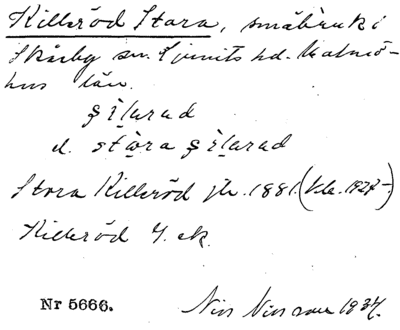 Killeröd Stora, småbruk i
Skårby sn. Ljunits hd. Malmö-
hus län.
ṣìlarad
d. stòra ṣìlarad
Stora Killeröd jb. 1881. (
Killeröd 4. ek.
Nr 5666. Nils Nilsson 1937.